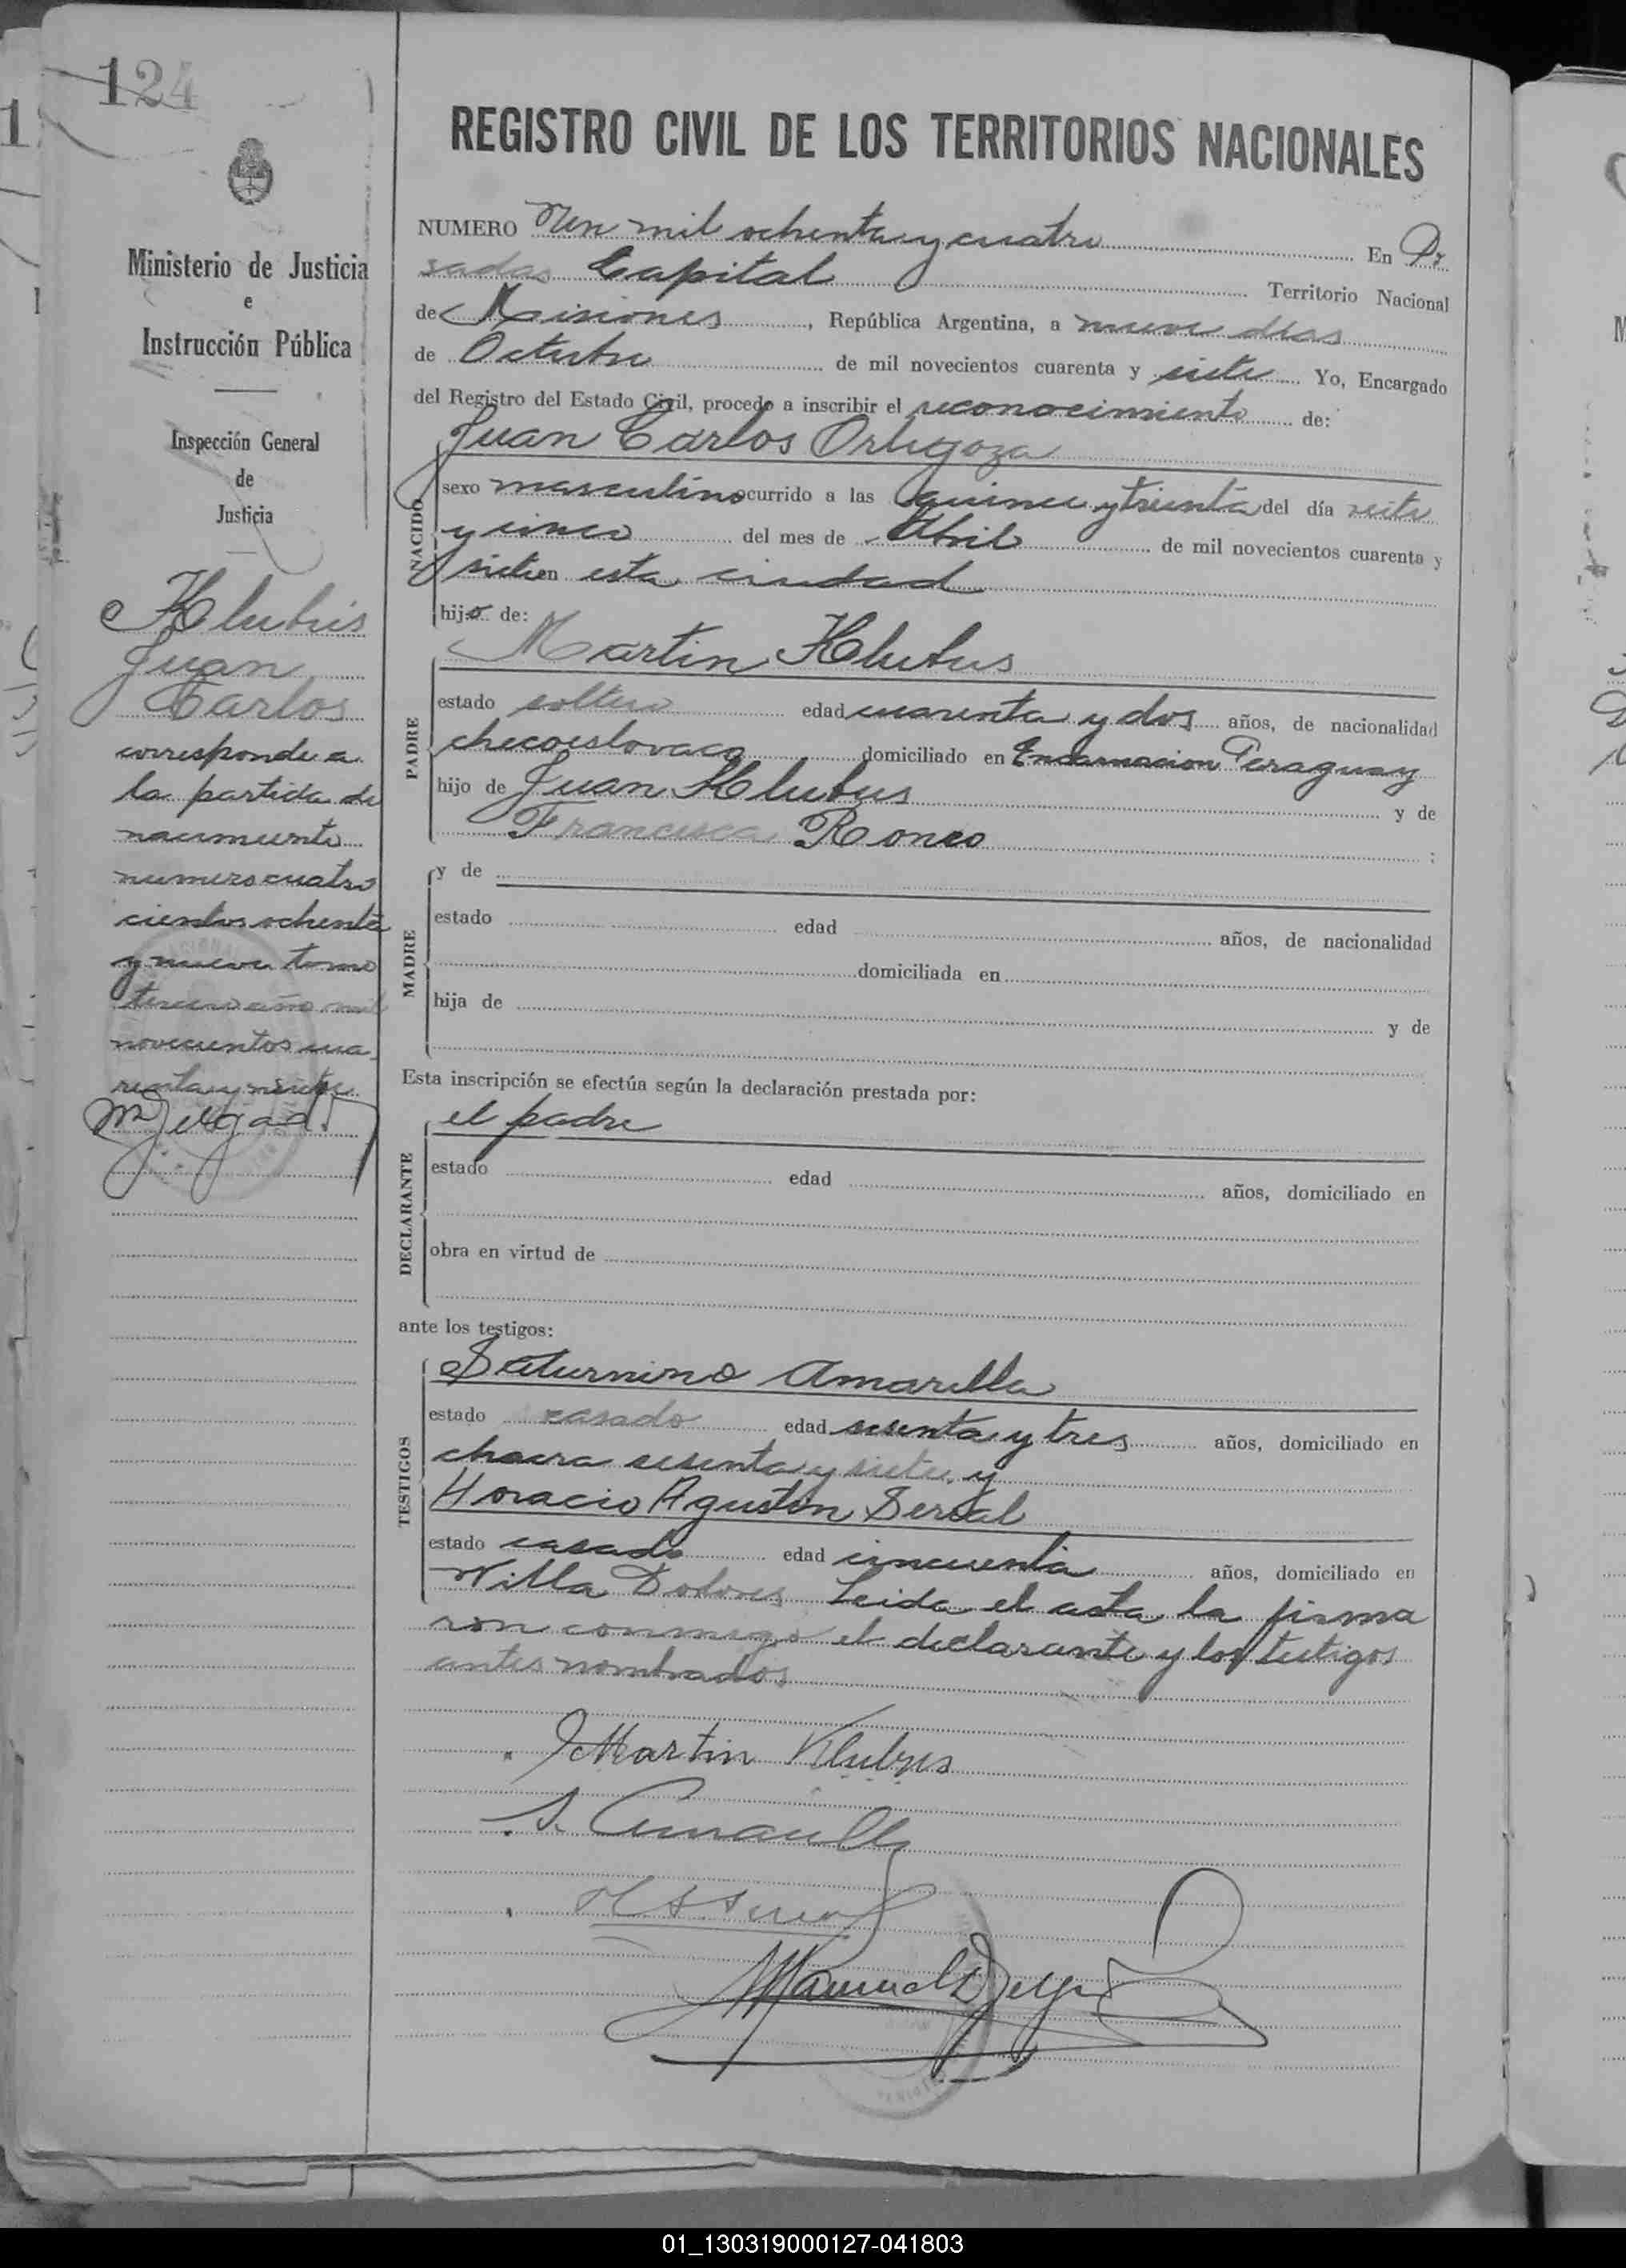 124
Ministerio de Justicia
e
Instrucción Pública
Inspección General
de
Justicia
Klubus
Juan
Carlos
corresponde a
la partida de
nacimiento
numero cuatro
cientos ochenta
y nueve tomo
tercero año mil
novecientos cua
renta y siete
REGISTRO CIVIL DE LOS TERRITORIOS NACIONALES
NUMERO Un mil ochenta y cuatro En Po
sadas Capital Territorio Nacional
de Misiones, República Argentina, a nueve dias
de Octubre de mil novecientos cuarenta y siete Yo, Encargado
del Registro del Estado Civil, procedo a inscribir el reconocimiento de:
Juan Carlos Ortigoza
NACIDO
sexo masculino ocurrido a las quince y treinta del día veite
y cinco del mes de Abril de mil novecientos cuarenta y
siete en esta ciudad
hijo de:
Martin Klubus
PADRE
estado soltero edad cuarenta y dos años, de nacionalidad
checoeslovaco domiciliado en Encarnacion Paraguay
hijo de Juan Klubus y de
Francisca Ronco ;
MADRE
y de
estado edad años, de nacionalidad
domiciliada en
hija de y de
Esta inscripción se efectúa según la declaración prestada por:
el padre
DECLARANTE
estado edad años, domiciliado en
obra en virtud de
ante los testigos:
TESTIGOS
Saturnino Amarilla
estado casado edad sesenta y tres años, domiciliado en
chacra sesenta y siete y
Horacio Agustin Seral
estado casado edad cincuenta años, domiciliado en
Villa Dolores Leida el acta la firma
ron conmigo el declarante y los testigos
antes nombrados
Martin Klubus
S. Amarilla
01_130319000127-041803